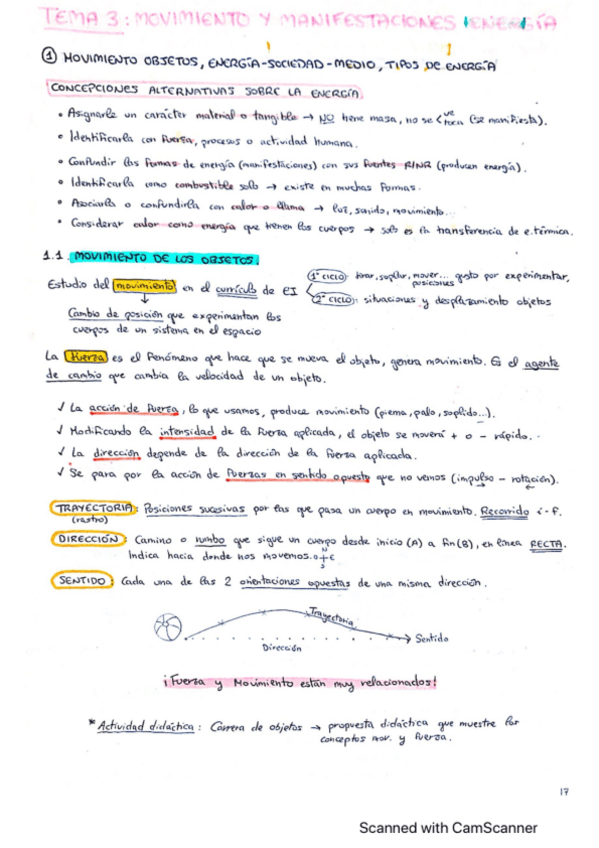 TEMA 3: MOVIMIENTO Y MANIFESTACIONES ENERGÍA
① MOVIMIENTO OBJETOS, ENERGÍA-SOCIEDAD-MEDIO, TIPOS DE ENERGÍA
CONCEPCIONES ALTERNATIVAS SOBRE LA ENERGÍA
• Asignarle un carácter material o tangible → NO tiene masa, no se < ve toca (se manifiesta).
• Identificarla con fuerza, procesos o actividad humana.
• Confundir las formas de energía (manifestaciones) con sus fuentes R/NR (producen energía).
• Identificarla como combustible solo → existe en muchas formas.
• Asociarla o confundirla con calor o llama → luz, sonido, movimiento...
• Considerar calor como energía que tienen los cuerpos → solo es la transferencia de e.térmica.
1.1. MOVIMIENTO DE LOS OBJETOS.
Estudio del movimiento en el currículo de EI
1º CICLO: tirar, soplar, mover... gusto por experimentar, posiciones
2º CICLO: situaciones y desplazamiento objetos
Cambio de posición que experimentan los
cuerpos de un sistema en el espacio
La fuerza es el fenómeno que hace que se mueva el objeto, genera movimiento. Es el agente
de cambio que cambia la velocidad de un objeto.
✓ La acción de fuerza, lo que usamos, produce movimiento (pierna, palo, soplido...).
✓ Modificando la intensidad de la fuerza aplicada, el objeto se moverá + o - rápido.
✓ La dirección depende de la dirección de la fuerza aplicada.
✓ Se para por la acción de fuerzas en sentido opuesto que no vemos (impulso - rotación).
TRAYECTORIA: Posiciones sucesivas por las que pasa un cuerpo en movimiento. Recorrido i-f.
(rastro)
DIRECCIÓN: Camino o rumbo que sigue un cuerpo desde inicio (A) a fin (B), en línea RECTA.
Indica hacia donde nos movemos. N O + E S
SENTIDO: Cada una de las 2 orientaciones opuestas de una misma dirección.
Trayectoria
Sentido
Dirección
¡Fuerza y Movimiento están muy relacionados!
* Actividad didáctica: Carrera de objetos → propuesta didáctica que muestre los
conceptos mov. y fuerza.
17
Scanned with CamScanner